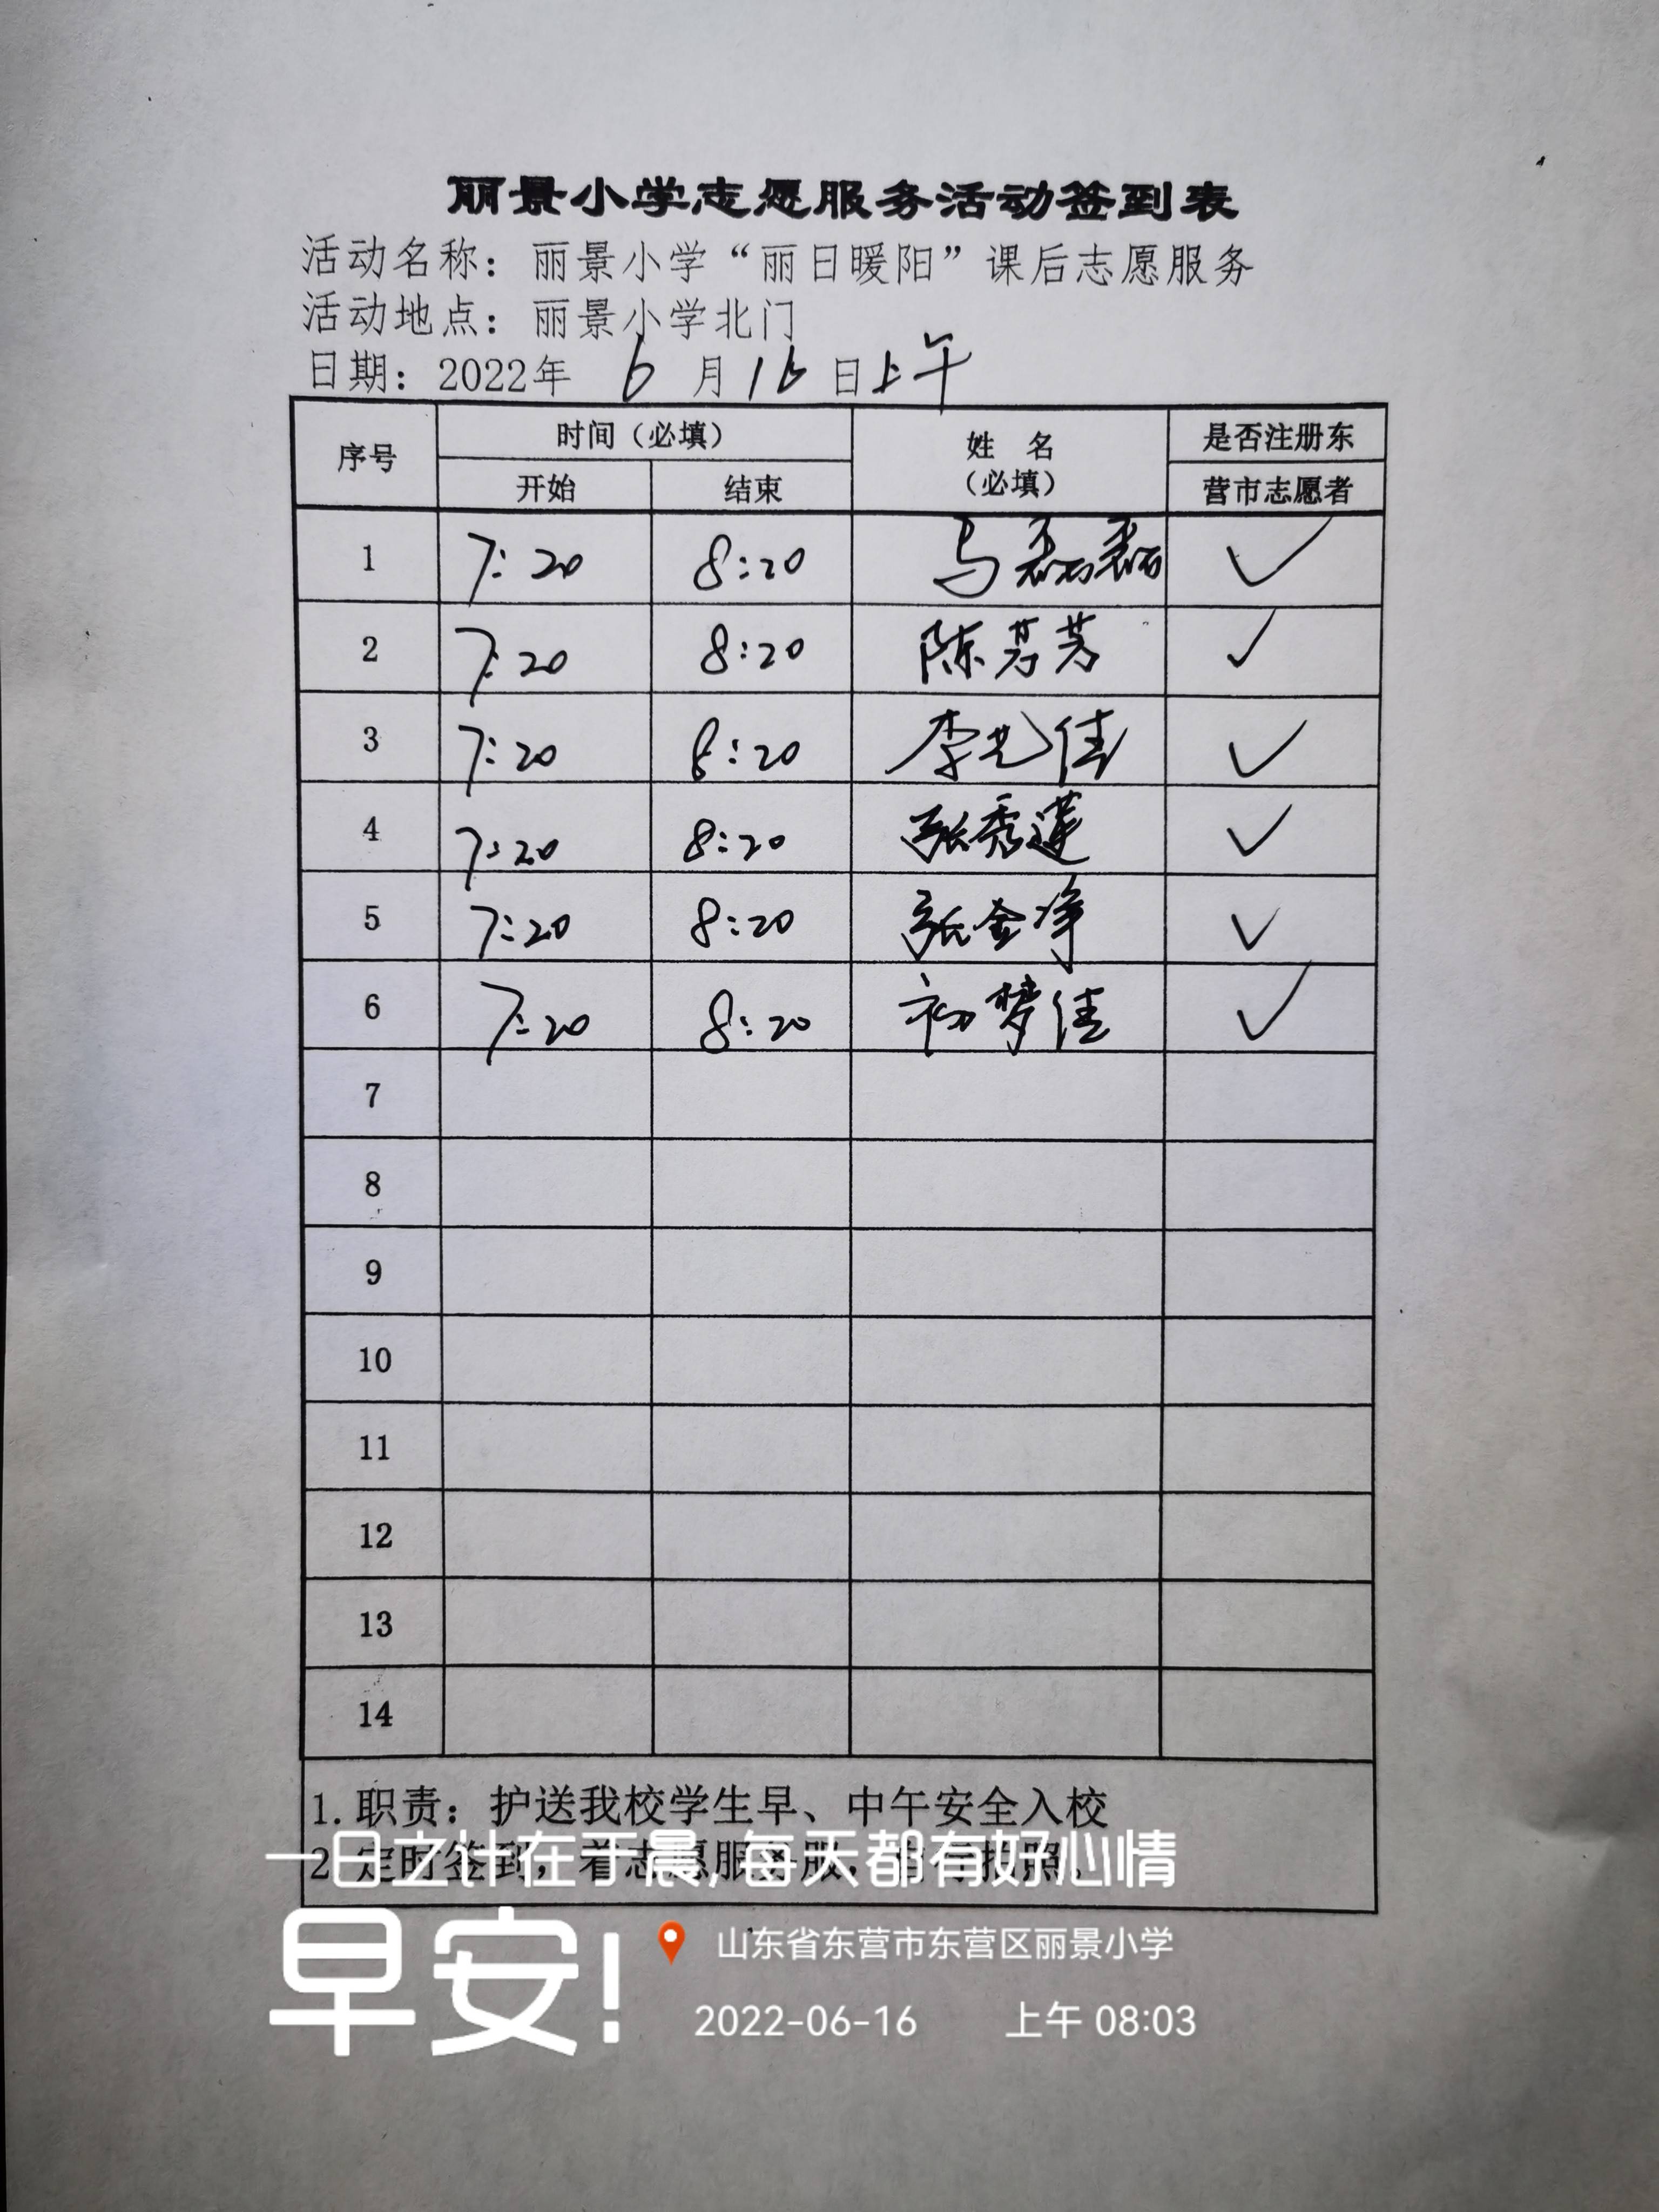 丽景小学志愿服务活动签到表
活动名称：丽景小学“丽日暖阳”课后志愿服务
活动地点：丽景小学北门
日期：2022年 6 月 16 日上午
序号 时间（必填） 姓 名 是否注册东
开始 结束 （必填） 营市志愿者
1 7:20 8:20 马磊磊 ✓
2 7:20 8:20 陈芳芳 ✓
3 7:20 8:20 李光佳 ✓
4 7:20 8:20 张秀莲 ✓
5 7:20 8:20 张金净 ✓
6 7:20 8:20 初梦佳 ✓
7
8
9
10
11
12
13
14
1.职责：护送我校学生早、中午安全入校
2 定时签到，着志愿服务服，拍照。
一日之计在于晨,每天都有好心情
早安!
山东省东营市东营区丽景小学
2022-06-16 上午 08:03